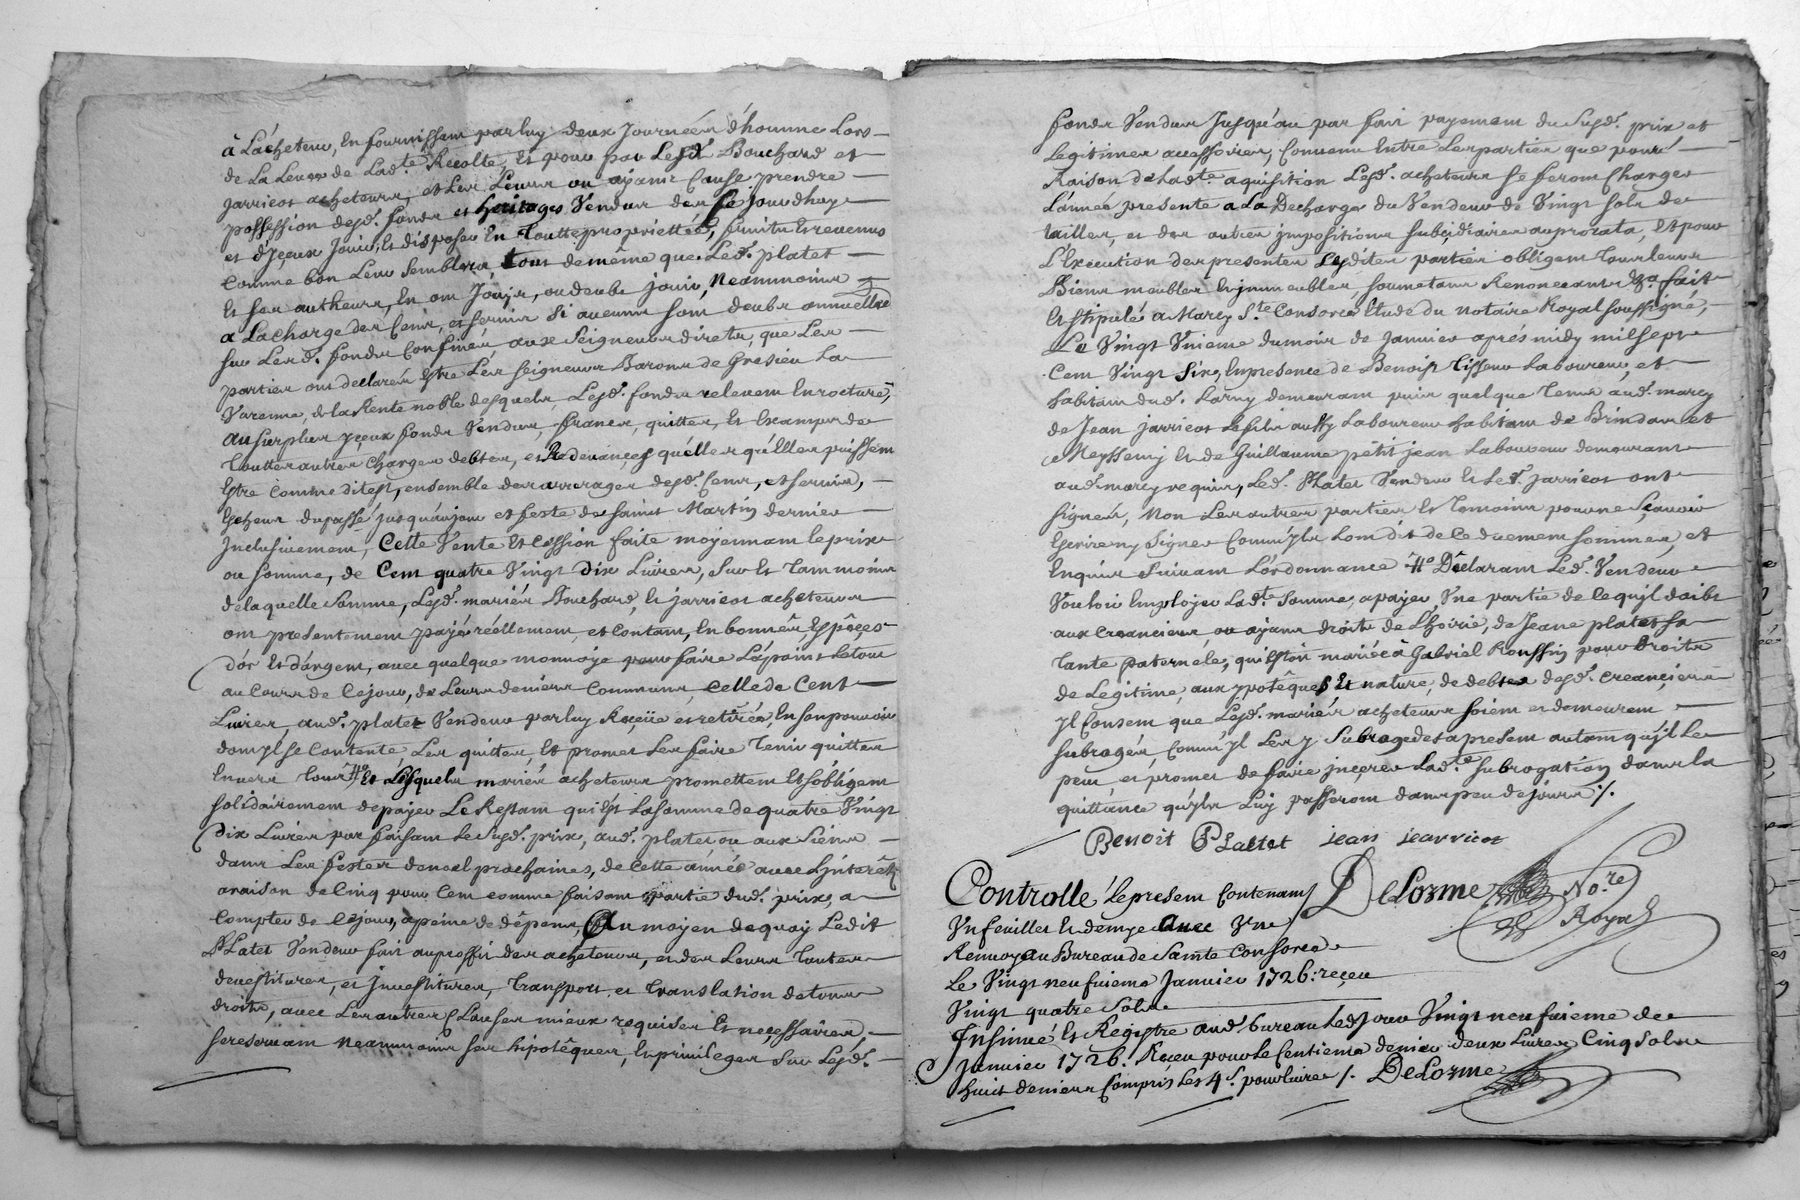 à Lácheteur, En fournissant par luy deux Journéer d'homme Lors
de La Levee de Lad.te Recolte, Et pour par Lesd. Bouchard et
jarricot acheteurs, et Les Leurs ou ayant Cause prendre
possession desd. fonds et heritages Vendus des Ce jourdhuy
et d'Jceux Jouir, Et disposer En touttes proprietteés, fruits Et revenus
Comme bon Leur Semblera, tout de même que Led. platet
Et ses autheurs, En ont Joüy, ou deubt jouir, Neammoins
a La charge des Cens, et servis Si aucuns sont deubs annuellem.t
sur Lesd. fonds Confinés, aux Seigneurs directs, que Les
parties ont declarés Estre Les seigneurs Barons de Gresieu La
Varenne, de la Rente noble desquels, Lesd. fonds relevent En roture,
Au surplus yceux fonds Vendus, francs, quittes, Et Exempts de
Toutter autres Charges debtes, et Redevances quéllesqu'elles puissent
Estre comme dit est, ensemble des arrerages desd. Cens, et servis,
Echeus du passé jusquáujour et feste de saint Martin dernier
Inclusivement, Cette Vente Et Cession faite moyennant le prix
ou somme, de Cent quatre Vingt dix Livres, Sur Et Tammoins
de laquelle Somme, Lesd. mariés Bouchard, Et jarricot acheteurs
ont presentement payé réellement et contant, En bonnes Espéces
dór Et dárgent, avec quelque monnoye pour faire Láppoint Le tout
au Cours de Cejour, de Leurs deniers Communs, Celle de Cent
Livres, aud. platet Vendeur par luy Reçüe et retirée, En son pouvoir
dont yl se Contente, Les quitter, Et promet Les faire Tenir quittes
Envers Tous, Et Lesquels mariés acheteurs promettent Et sóbligent
solidairement de payer Le Restant qui Est La somme de quatre Vingt
Dix Livres par faisant Le Susd. prix, aud. platet ou aux Siens
dans Les festes de noel prochaines, de Cette année avec L'jnterêt
a raison de Cinq pour Cent comme faisant partie dud. prix, a
Compter de Cejour, à peine de dépens, Au moyen de quoy Ledit
Platet Vendeur fait au proffit des acheteurs, et des Leurs Toutes
devestitures, et jnvestitures, Transport et translation de tous
droits, avec Les autres Clauses mieux requises Et neçessaires,
se reservant Neammoins ses hipotêques, Et privileges Sur Lesd.
fonds Vendus Jusqu'au par fait payement du Susd. prix et
Legitimes accessoires, Convenu Entre Les parties que pour
Raison de Lad.te aquisition Lesd. acheteurs se feront Charges
L'année presente a La Decharge du Vendeur de Vingt sols de
tailles, et des autres jmpositions subçidiaires au prorata, Et pour
L'Execution des presentes Lesdites parties obligent Tous Leurs
Biens meubles Et jmmeubles, soumetans Renonceants &.a fait
Et Stipulé a Marcy S.te Consorce Etude du notaire Royal soussigné,
Le Vingt Unieme du mois de Janvier aprés midy mil sept
Cent Vingt Six, En presence de Benoist Tisseur Laboureur, et
habitant dud. Larny demeurant puis quelque Tems aud. marcy
de Jean jarricot Le fils aussy Laboureur habitant de Brindas et
Meyssemy Et de Guillaume petit jean Laboureur demeurant
aud. marcy requis, Led. Platet Vendeur Et Led. jarricot ont
signés, Non Les autres parties Et Temoins pour ne Sçavoir
Escrire ny Signer Comm'yls Lont dit de Ce duement sommés, et
Enquis Suivant Lórdonnance Declarant Led. Vendeur
Vouloir Employer Lad.te Somme, a payer Une partie de Ce quyl doibt
aux Creanciers ou ayans droits de L'hoirie, de Jeane platet sa
Tante Paternele, qui Estoit mariée à Gabriel Roussin pour Droits
de Legitime, aux ypotêques Et nature, de debtes desd. Creançiers
yl Consent que Lesd. mariés acheteurs soient et demeurent
subrogés, Comm'yl Les y Subroge des a present autant quyl Le
peut, et promet de faire jnserer Lad.te subrogation dans La
quittance quyls Luy passeront dans peu de jours ./.
Benoit Plattet jean jearricot
Controllé Le present Contenant DeLorme No.re
Un feuillet Et demye Avec Un Royal
Renvoy au Bureau de Sainte Consorce
Le Vingt neufuieme Janvier 1726: reçeu
Vingt quatre Sols
Insinué Et Registre aud. bureau Led. Jour Vingt neufuieme de
Janvier 1726. Reçeu pour Le Centieme denier deux Livres Cinq Sols
huit deniers Compris Les 4 s. pour Livre /. DeLorme